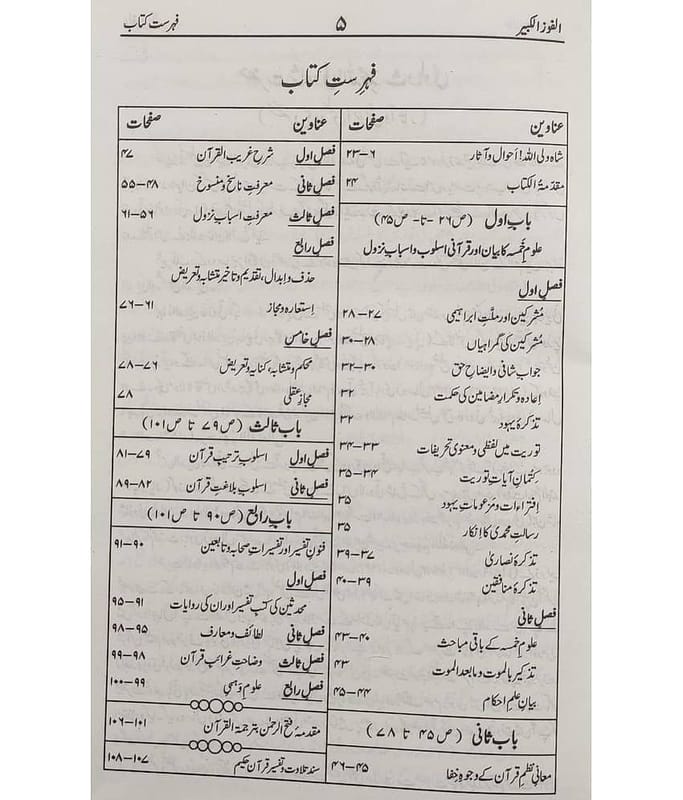 الفوز الکبیر
۵
فہرست کتاب
فہرستِ کتاب
عناوین صفحات
شاہ ولی اللہ! أحوال و آثار ۶–۲۳
مقدمۃ الکتاب ۲۴
باب اول (ص۲۶ -تا- ص۴۵)
علومِ خَمسہ کا بیان اور قرآنی اسلوب و اسبابِ نزول
فصل اول
مُشرکین اور ملّتِ ابراہیمی ۲۷–۲۸
مُشرکین کی گمراہیاں ۲۸–۳۰
جوابِ شافی و ایضاحِ حق ۳۰–۳۲
اِعادہ و تکرارِ مضامین کی حکمت ۳۲
تذکرۂ یہود ۳۲
توریت میں لفظی و معنوی تحریفات ۳۳–۳۴
کِتمانِ آیاتِ توریت ۳۴–۳۵
اِفتراءات و مَزعوماتِ یہود ۳۵
رسالتِ محمدی کا اِنکار ۳۵
تذکرۂ نصاریٰ ۳۷–۳۹
تذکرۂ منافقین ۳۹–۴۰
فصل ثانی
علومِ خمسہ کے باقی مباحث ۴۰–۴۳
تذکیر بالموت و مابعد الموت ۴۳
بیانِ علمِ احکام ۴۴–۴۵
باب ثانی (ص۴۵ تا ۷۸)
معانیٔ نظمِ قرآن کے وجوہِ خِفا ۴۵–۴۶
عناوین صفحات
فصل اول شرحِ غریب القرآن ۴۷
فصل ثانی معرفتِ ناسخ و منسوخ ۴۸–۵۵
فصل ثالث معرفتِ اسبابِ نزول ۵۶–۶۱
فصل رابع
حذف و اِبدال، تقدیم و تاخیر متشابہ و تعریض
اِستعارہ و مجاز ۶۱–۷۶
فصل خامس
محکم و متشابہ، کنایہ و تعریض ۷۶–۷۸
مجازِ عقلی ۷۸
باب ثالث (ص۷۹ تا ص۱۰۱)
فصل اول اسلوبِ ترتیبِ قرآن ۷۹–۸۱
فصل ثانی اسلوبِ بلاغتِ قرآن ۸۲–۸۹
باب رابع (ص۹۰ تا ص۱۰۱)
فنونِ تفسیر اور تفسیراتِ صحابہ و تابعین ۹۰–۹۱
فصل اول
محدثین کی کتبِ تفسیر اور ان کی روایات ۹۱–۹۵
فصل ثانی لطائف و معارف ۹۵–۹۸
فصل ثالث وضاحتِ غرائبِ قرآن ۹۸–۹۹
فصل رابع علومِ وَہبی ۹۹–۱۰۰
مقدمۂ فتح الرحمٰن بترجمۃ القرآن ۱۰۱–۱۰۶
سندِ تلاوت و تفسیر قرآنِ حکیم ۱۰۷–۱۰۸